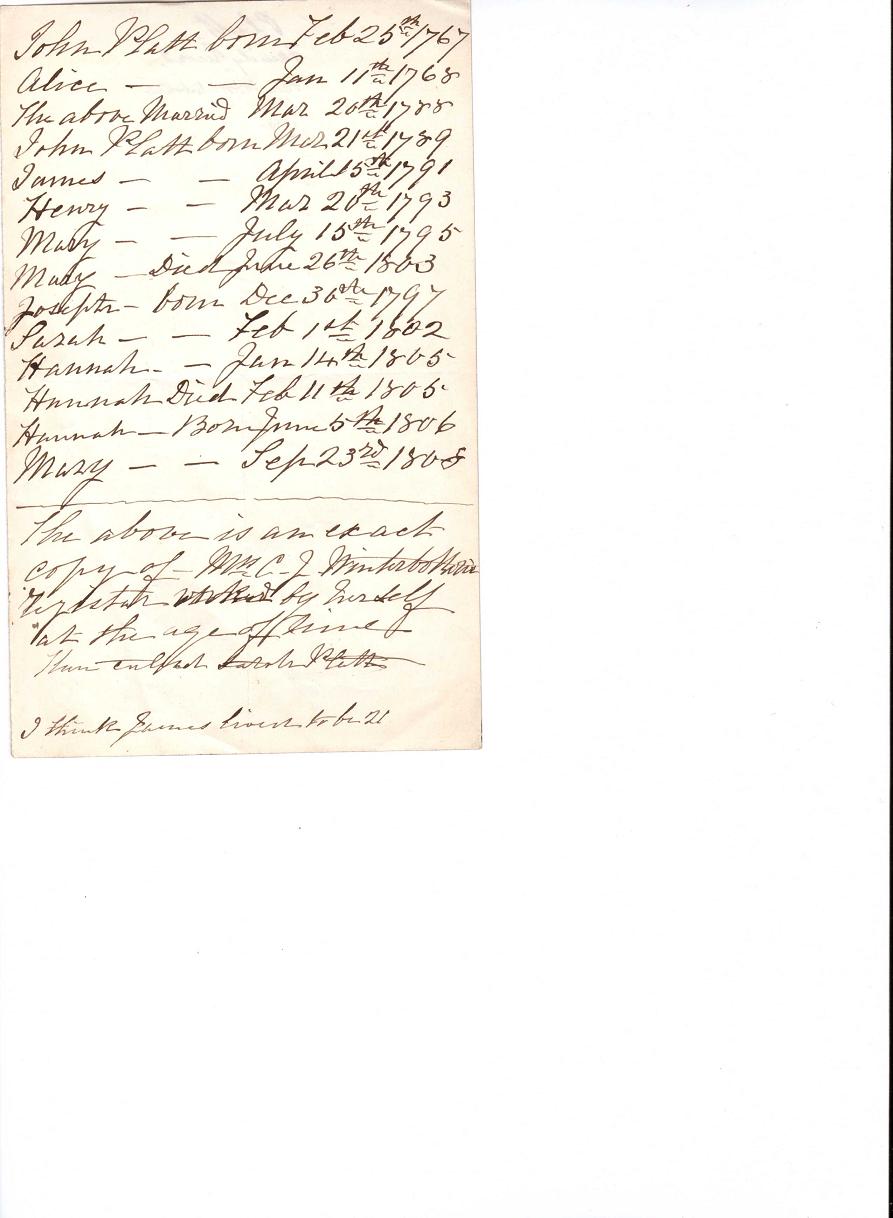 John Platt born Feb 25th 1767
Alice — — Jan 11th 1768
The above Married Mar 20th 1788
John Platt born Mar 21st 1789
James — — April 15th 1791
Henry — — Mar 20th 1793
Mary — — July 15th 1795
Mary — Died June 26th 1803
Joseph — born Dec 30th 1797
Sarah — — Feb 1st 1802
Hannah — — Jan 14th 1805
Hannah Died Feb 11th 1805
Hannah — Born June 5th 1806
Mary — — Sep 23rd 1808
The above is an exact
copy of Mrs C J Winterbottom
register worked by herself
at the age of nine
Sarah Platt
I think James lived to be 21